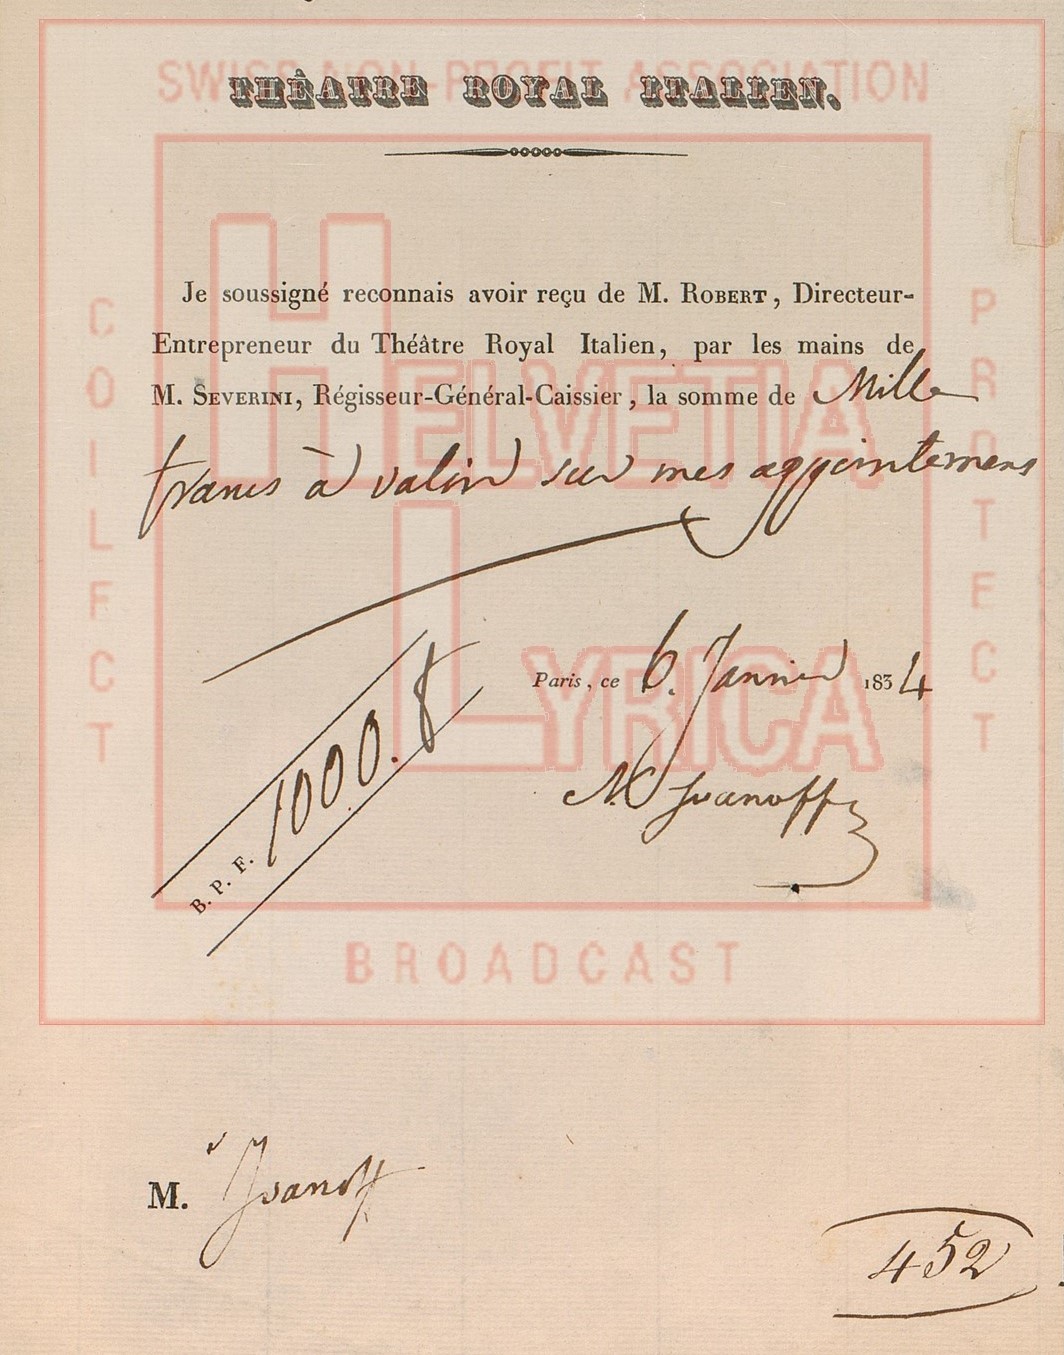 SWISS NON-PROFIT ASSOCIATION
THÉATRE ROYAL ITALIEN.
Je soussigné reconnais avoir reçu de M. ROBERT, Directeur-
Entrepreneur du Théâtre Royal Italien, par les mains de
M. SEVERINI, Régisseur-Général-Caissier, la somme de Mille
francs à valoir sur mes appointemens
Paris, ce 6. Janvier 1834
N. Ivanoff
B. P. F. 1000. f
HELVETIA
LYRICA
COLLECT
PROTECT
BROADCAST
M. Ivanoff
452